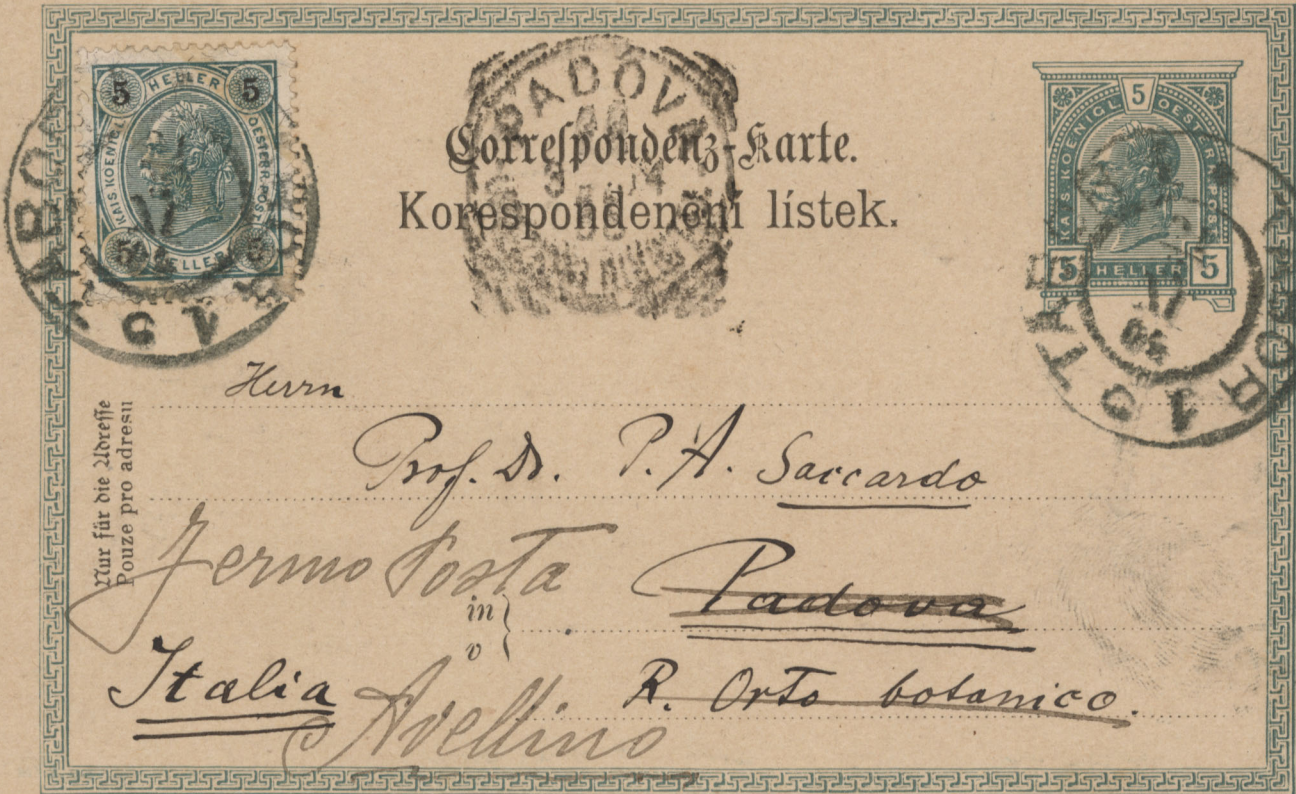 5 HELLER 5
KAIS. KOENIGL. OESTERR. POST
5 HELLER 5
PADOVA
Correſpondenz-Karte.
Korespondenční lístek.
5
KAIS. KOENIGL. OESTERR. POST
5 HELLER 5
TABOR
TABOR
Nur für die Adreſſe
Pouze pro adresu
Herrn
Prof. Dr. P. A. Saccardo
Fermo Posta
in
v
Padova
Italia
R. Orto botanico.
Avellino